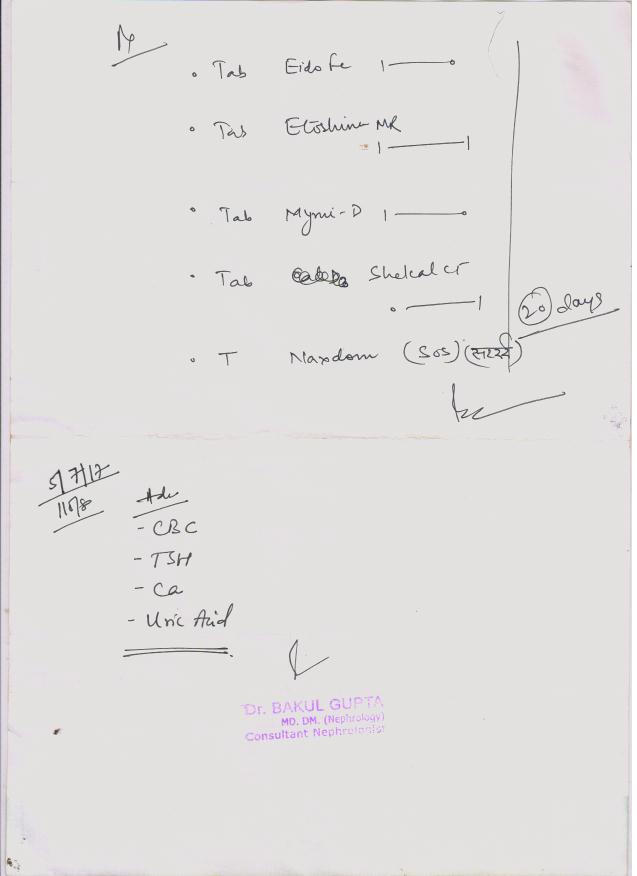 Rx
• Tab Eidofe 1——•
• Tab Etoshine MR
1——1
• Tab Mymi-D 1——•
• Tab Shelcal CT
•——1
20 days
• T Naxdom (SOS)
5/7/17
Adv
- CBC
- TSH
- Ca
- Uric Acid
Dr. BAKUL GUPTA
MD. DM. (Nephrology)
Consultant Nephrologist